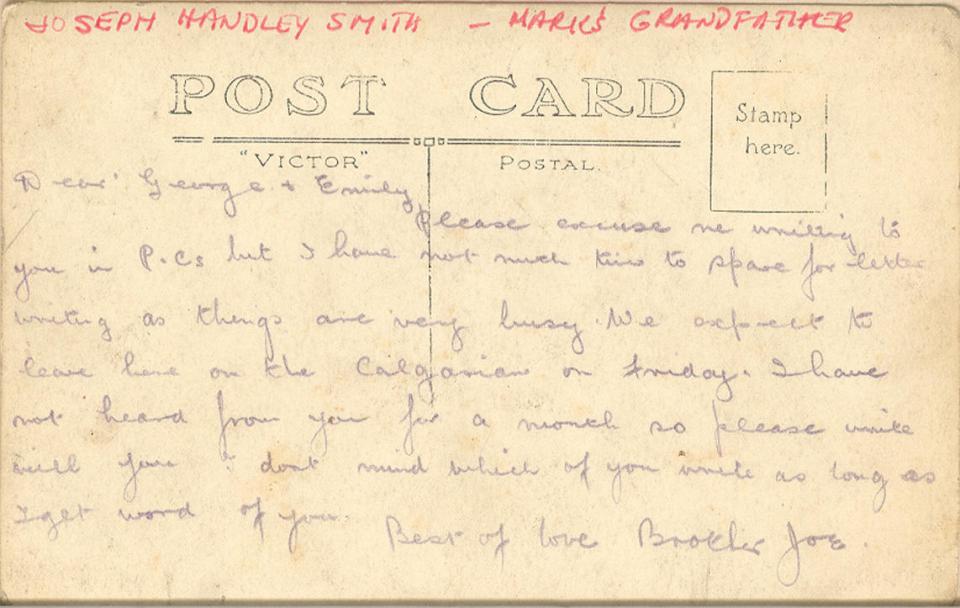 JOSEPH HANDLEY SMITH — MARK'S GRANDFATHER
POST CARD
Stamp
here.
"VICTOR" POSTAL.
Dear George & Emily,
Please excuse me writing to
you in P.Cs but I have not much time to spare for letter
writing as things are very busy. We expect to
leave here on the Calgarian on Friday. I have
not heard from you for a month so please write
will you I dont mind which of you write as long as
I get word of you.
Best of love Brother Joe.